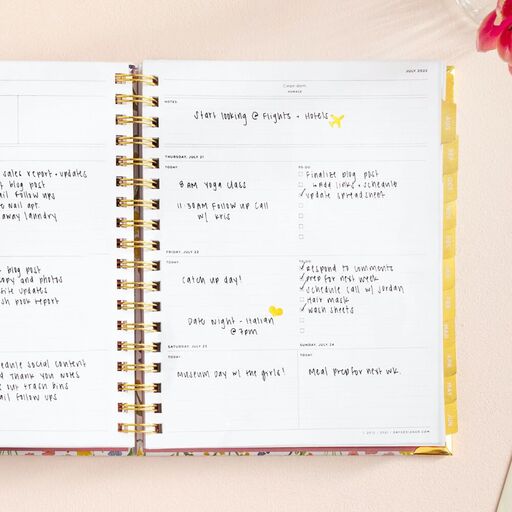 sales report + updates
t blog post
ail follow ups
e nail apt.
away laundry
blog post
opy and photos
site updates
sh book report
chedule social content
d thank you notes
e out trash bins
ail follow ups
JULY 2022
Carpe diem.
HORACE
NOTES
Start looking @ Flights + Hotels
THURSDAY, JULY 21
TODAY
TO DO
8 am Yoga Class
11:30am Follow up Call
w/ Kris
Finalize blog post
→ add links + schedule
update spreadsheet
FRIDAY, JULY 22
TODAY
TO DO
Catch up day!
Date Night - Italian
@ 7pm
Respond to comments
prep for next week
Schedule call w/ Jordan
Hair mask
wash sheets
SATURDAY, JULY 23
TODAY
Museum Day w/ the girls!
SUNDAY, JULY 24
TODAY
Meal prep for next wk.
AUG
SEP